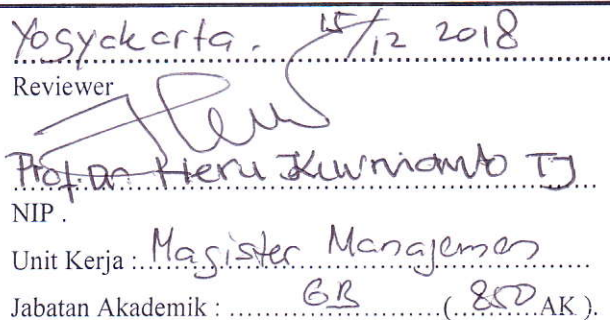 Yogyakarta. 15/12 2018
Reviewer
Prof. Dr Heru Kurnianto TJ
NIP .
Unit Kerja : Magister Manajemen
Jabatan Akademik : GB (850 AK ).